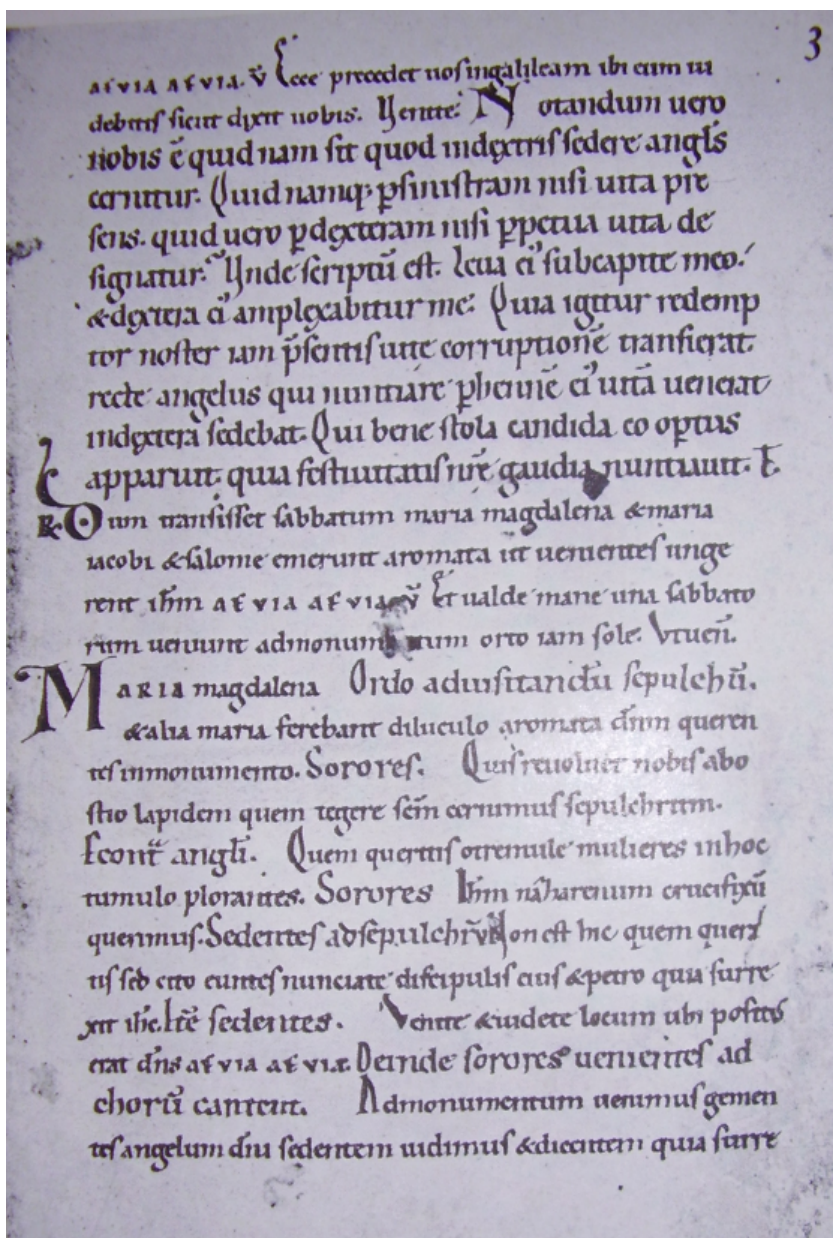 3
aevia aevia. v̄ Ecce precedet uos in galileam ibi eum ui
debitis sicut dixit uobis. Uenite. Notandum uero
nobis ē quid nam sit quod indextris sedere angl̄s
cernitur. Quid namq; p̱ sinistram nisi uita pre
sens. quid uero p̱ dexteram nisi p̱petua uita de
signatur. Unde scriptū est. Leua ei' sub capite meo.
& dextera ei' amplexabitur me. Quia igitur redemp
tor noster iam p̄sentis uite corruptionē transierat.
recte angelus qui nuntiare p̱hennē ei' uitā uenerat
in dexterā sedebat. Qui bene stola candida co op̱tus
apparuit. quia festiuitatis nr̄e gaudia nuntiauit. T̄
R Cum transisset sabbatum maria magdalena & maria
iacobi & salome emerunt aromata ut uenientes unge
rent ih̄m aevia aevia v̄ Et ualde mane una sabbato
rum ueniunt ad monumentum orto iam sole. Vt ueñ.
Maria magdalena Ordo aduisitandū sepulchrū.
& alia maria ferebant diluculo aromata dn̄m queren
tes in monumento. Sorores. Quis reuoluet nobis abo
stio lapidem quem tegere sc̄m cernimus sepulchrum.
Econt̄ angl̄i. Quem queritis o tremule mulieres in hoc
tumulo plorantes. Sorores Ih̄m nazarenum crucifixū
querimus. Sedentes ad sepulchrū Non est hic quem queri
tis sed cito euntes nunciate discipulis eius & petro quia surre
xit ih̄c. Itē sedentes. Venite & uidete locum ubi positus
erat dn̄s aevia aevia. Deinde sorores uenientes ad
chorū cantent. Ad monumentum uenimus gemen
tes angelum dn̄i sedentem uidimus & dicentem quia surre